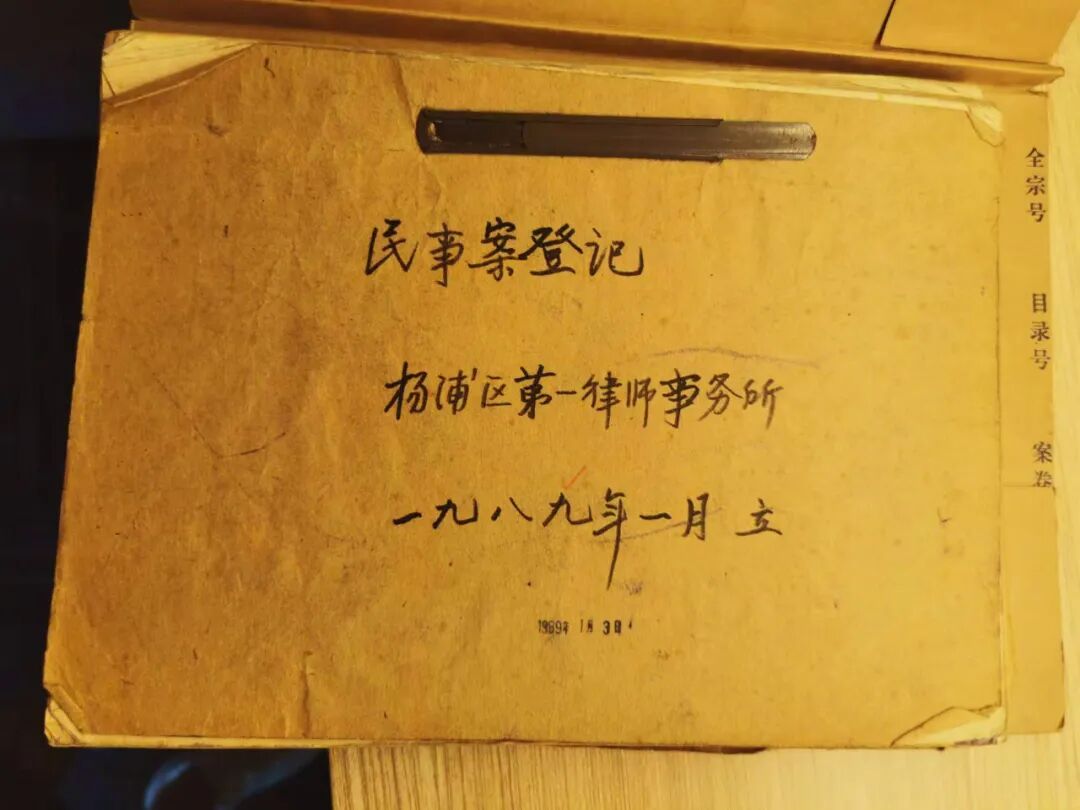 民事案登记
杨浦区第一律师事务所
一九八九年一月 立
1989年 1月 3日
全宗号
目录号
案卷